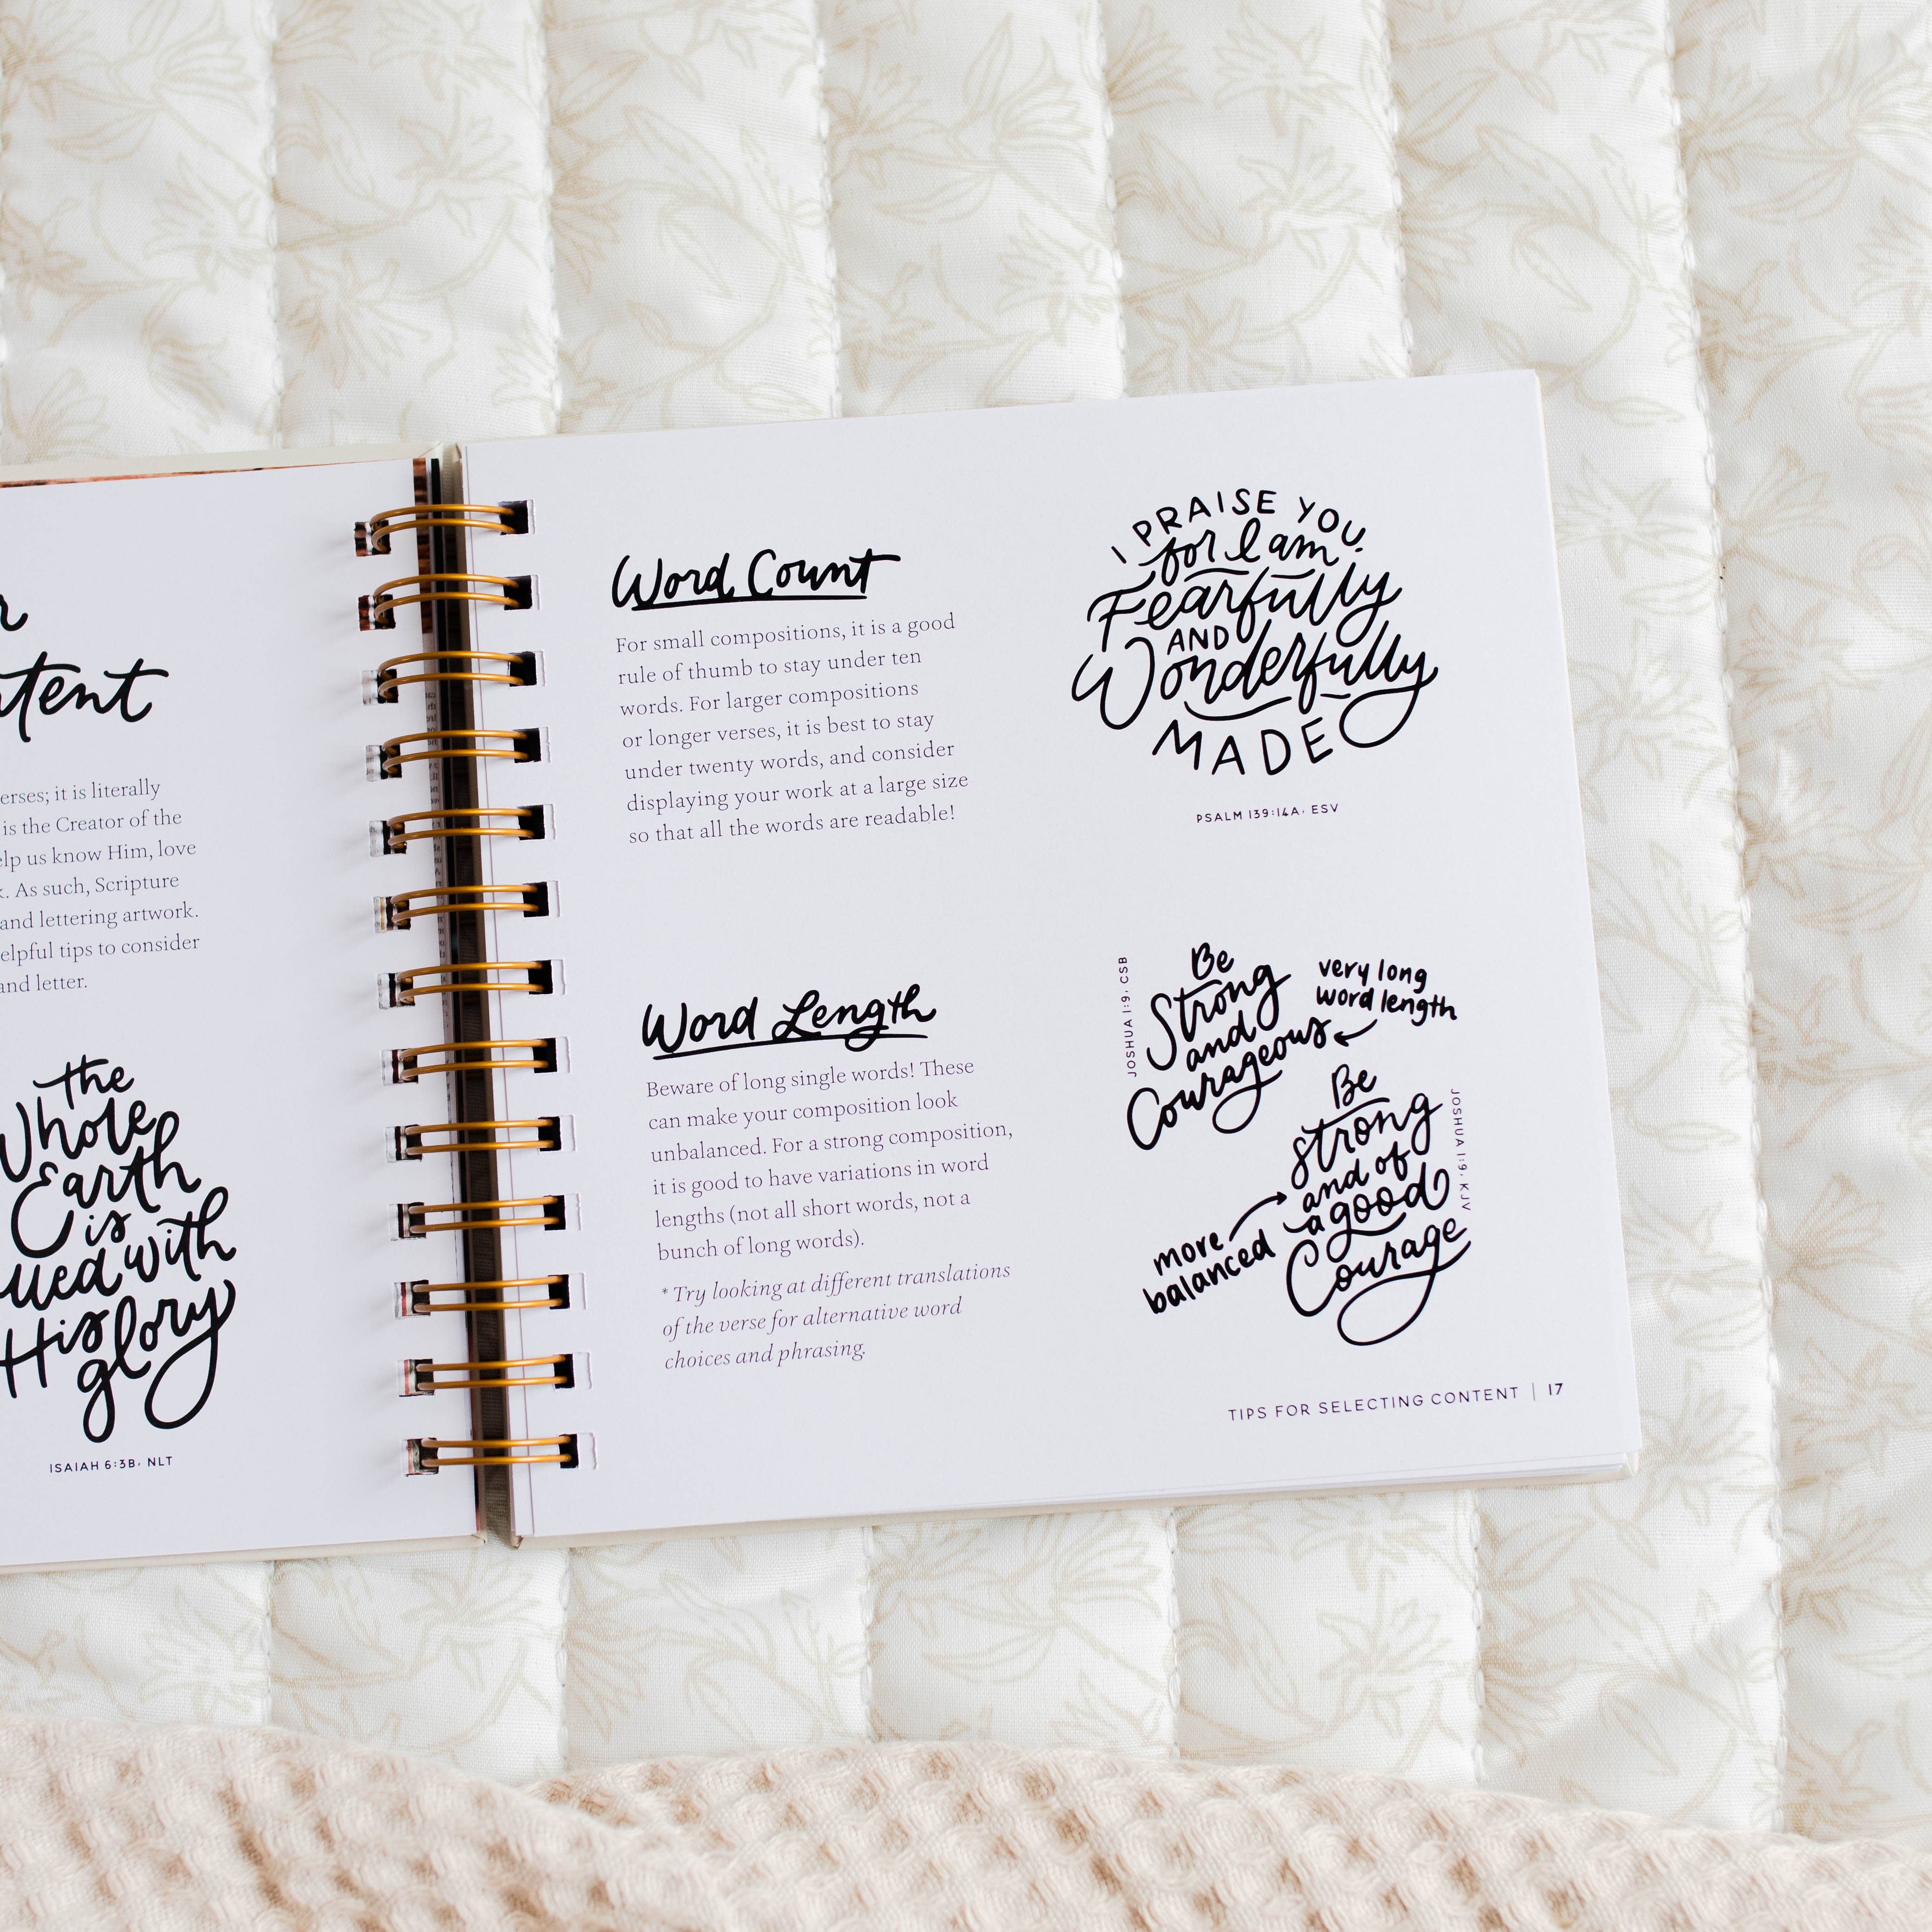 tent
erses; it is literally
is the Creator of the
elp us know Him, love
. As such, Scripture
and lettering artwork.
elpful tips to consider
and letter.
the
Whole
Earth
is
with
His
glory
ISAIAH 6:3B, NLT
Word Count
For small compositions, it is a good
rule of thumb to stay under ten
words. For larger compositions
or longer verses, it is best to stay
under twenty words, and consider
displaying your work at a large size
so that all the words are readable!
I PRAISE YOU
for I am
Fearfully
AND
Wonderfully
MADE
PSALM 139:14A, ESV
Word Length
Beware of long single words! These
can make your composition look
unbalanced. For a strong composition,
it is good to have variations in word
lengths (not all short words, not a
bunch of long words).
* Try looking at different translations
of the verse for alternative word
choices and phrasing.
JOSHUA 1:9, CSB
Be
Strong
and
Courageous
very long
word length
Be
strong
and of
a good
Courage
JOSHUA 1:9, KJV
more
balanced
TIPS FOR SELECTING CONTENT | 17